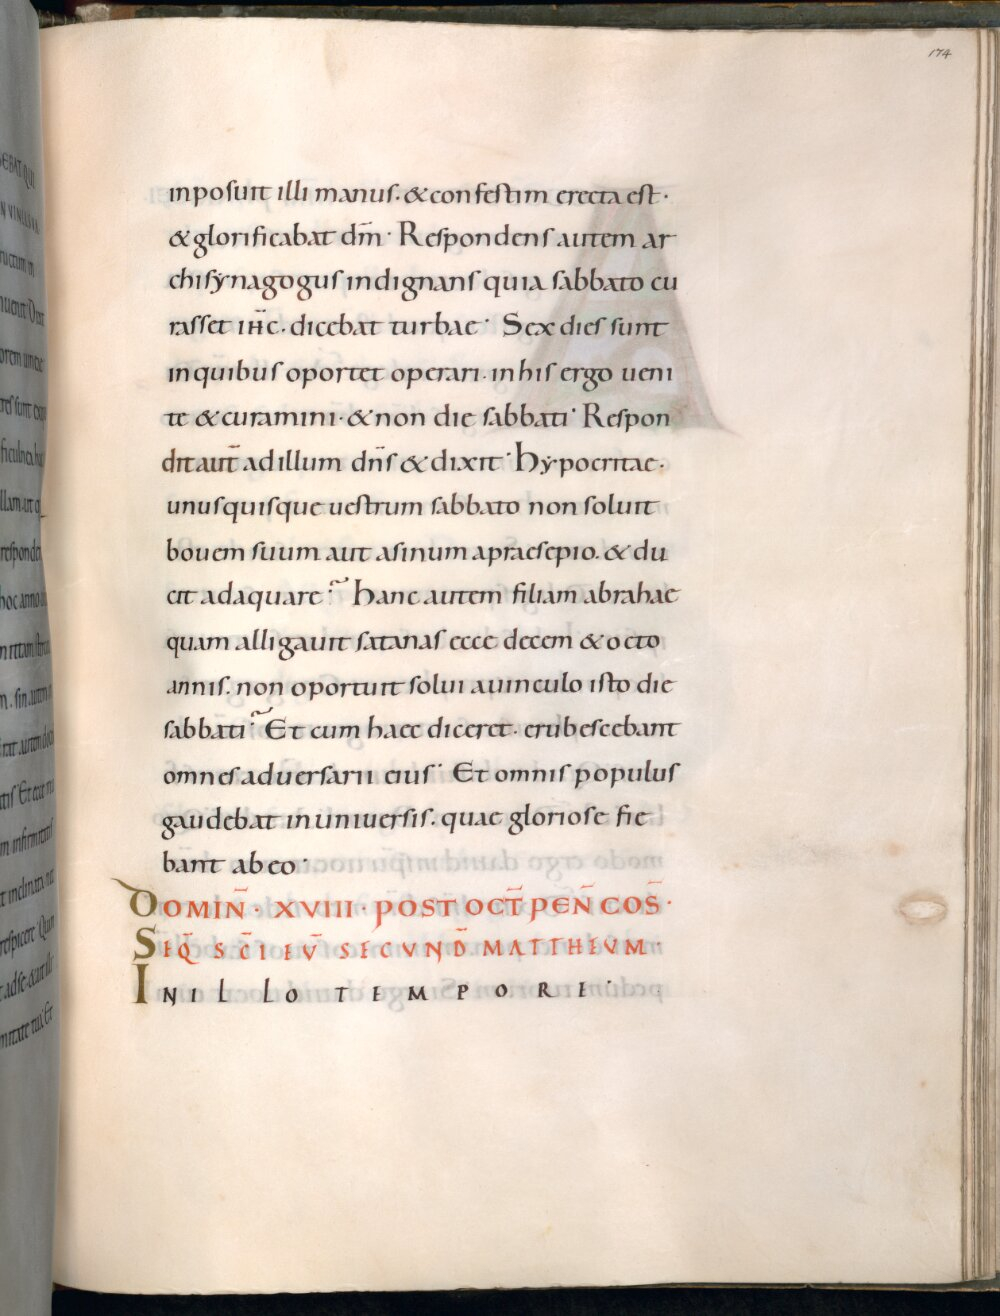 174
inposuit illi manus. & confestim erecta est.
& glorificabat dm̄. Respondens autem ar
chisẏnagogus indignans quia sabbato cu
rasset ih̄c. dicebat turbae. Sex dies sunt
in quibus oportet operari. in his ergo ueni
te & curamini. & non die sabbati. Respon
dit aut̄ ad illum dn̄s & dixit. hẏpocritae.
unusquisque uestrum sabbato non soluit
bouem suum aut asinum apraesepio. & du
cit adaquare? hanc autem filiam abrahae
quam alligauit satanas ecce decem & octo
annis. non oportuit solui auinculo isto die
sabbati? Et cum haec diceret. erubescebant
omnes aduersarii eius. Et omnis populus
gaudebat in uniuersis. quae gloriose fie
bant ab eo.
DOMIN̄. XVIII. POST OCT̄ PEN̄COS̄.
SEQ̄ SC̄I EV̄ SECVND̄ MATTHEVM.
IN ILLO TEMPORE.